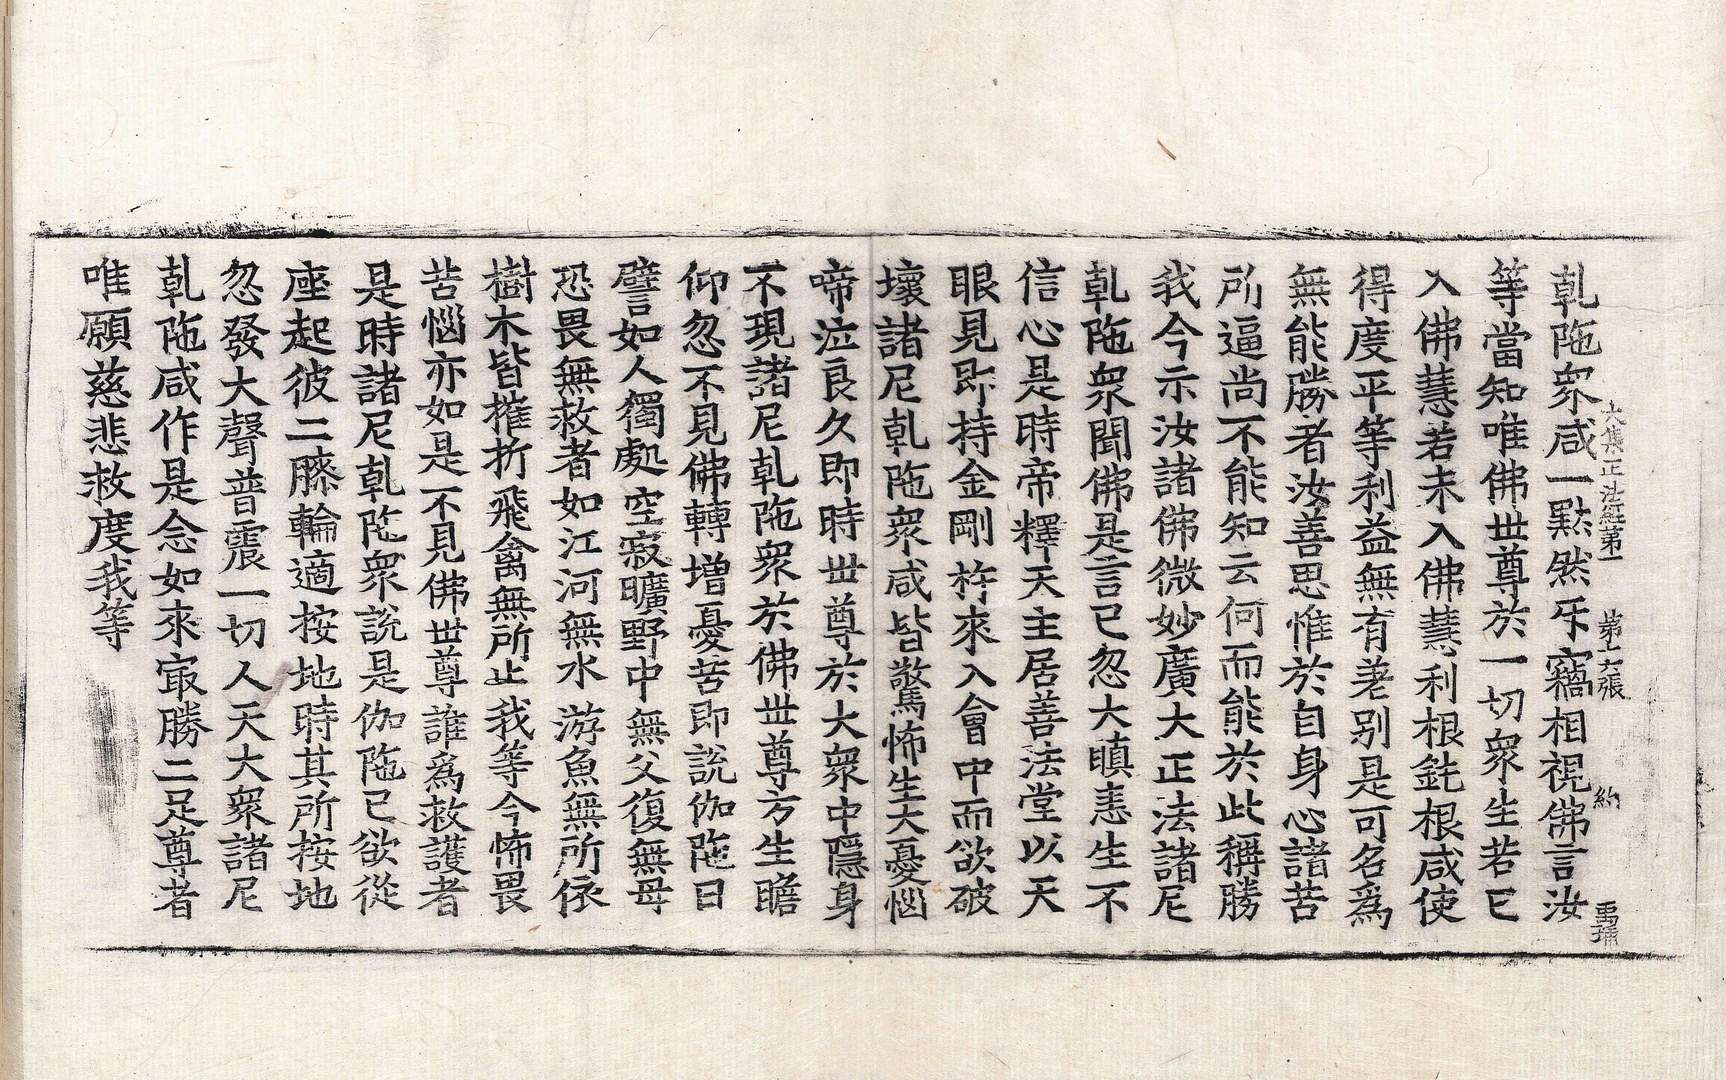 大集正法經第一 第十六張 約 禹弼
乹陁衆咸一黙然㸦竊相視佛言汝
等當知唯佛世尊於一切衆生若已
入佛慧若未入佛慧利根鈍根咸使
得度平等利益無有差別是可名爲
無能勝者汝善思惟於自身心諸苦
所逼尚不能知云何而能於此稱勝
我今示汝諸佛微妙廣大正法諸尼
乹陁衆聞佛是言已忽大瞋恚生不
信心是時帝釋天主居善法堂以天
眼見即持金剛杵來入會中而欲破
壞諸尼乹陁衆咸皆驚怖生大憂惱
啼泣良久即時世尊於大衆中隱身
不現諸尼乹陁衆於佛世尊方生瞻
仰忽不見佛轉增憂苦即說伽陁曰
譬如人獨處 空寂曠野中 無父復無母
恐畏無救者 如江河無水 游魚無所依
樹木皆摧折 飛禽無所止 我等今怖畏
苦惱亦如是 不見佛世尊 誰爲救護者
是時諸尼乹陁衆說是伽陁已欲從
座起彼二膝輪適按地時其所按地
忽發大聲普震一切人天大衆諸尼
乹陁咸作是念如來㝡勝二足尊者
唯願慈悲救度我等